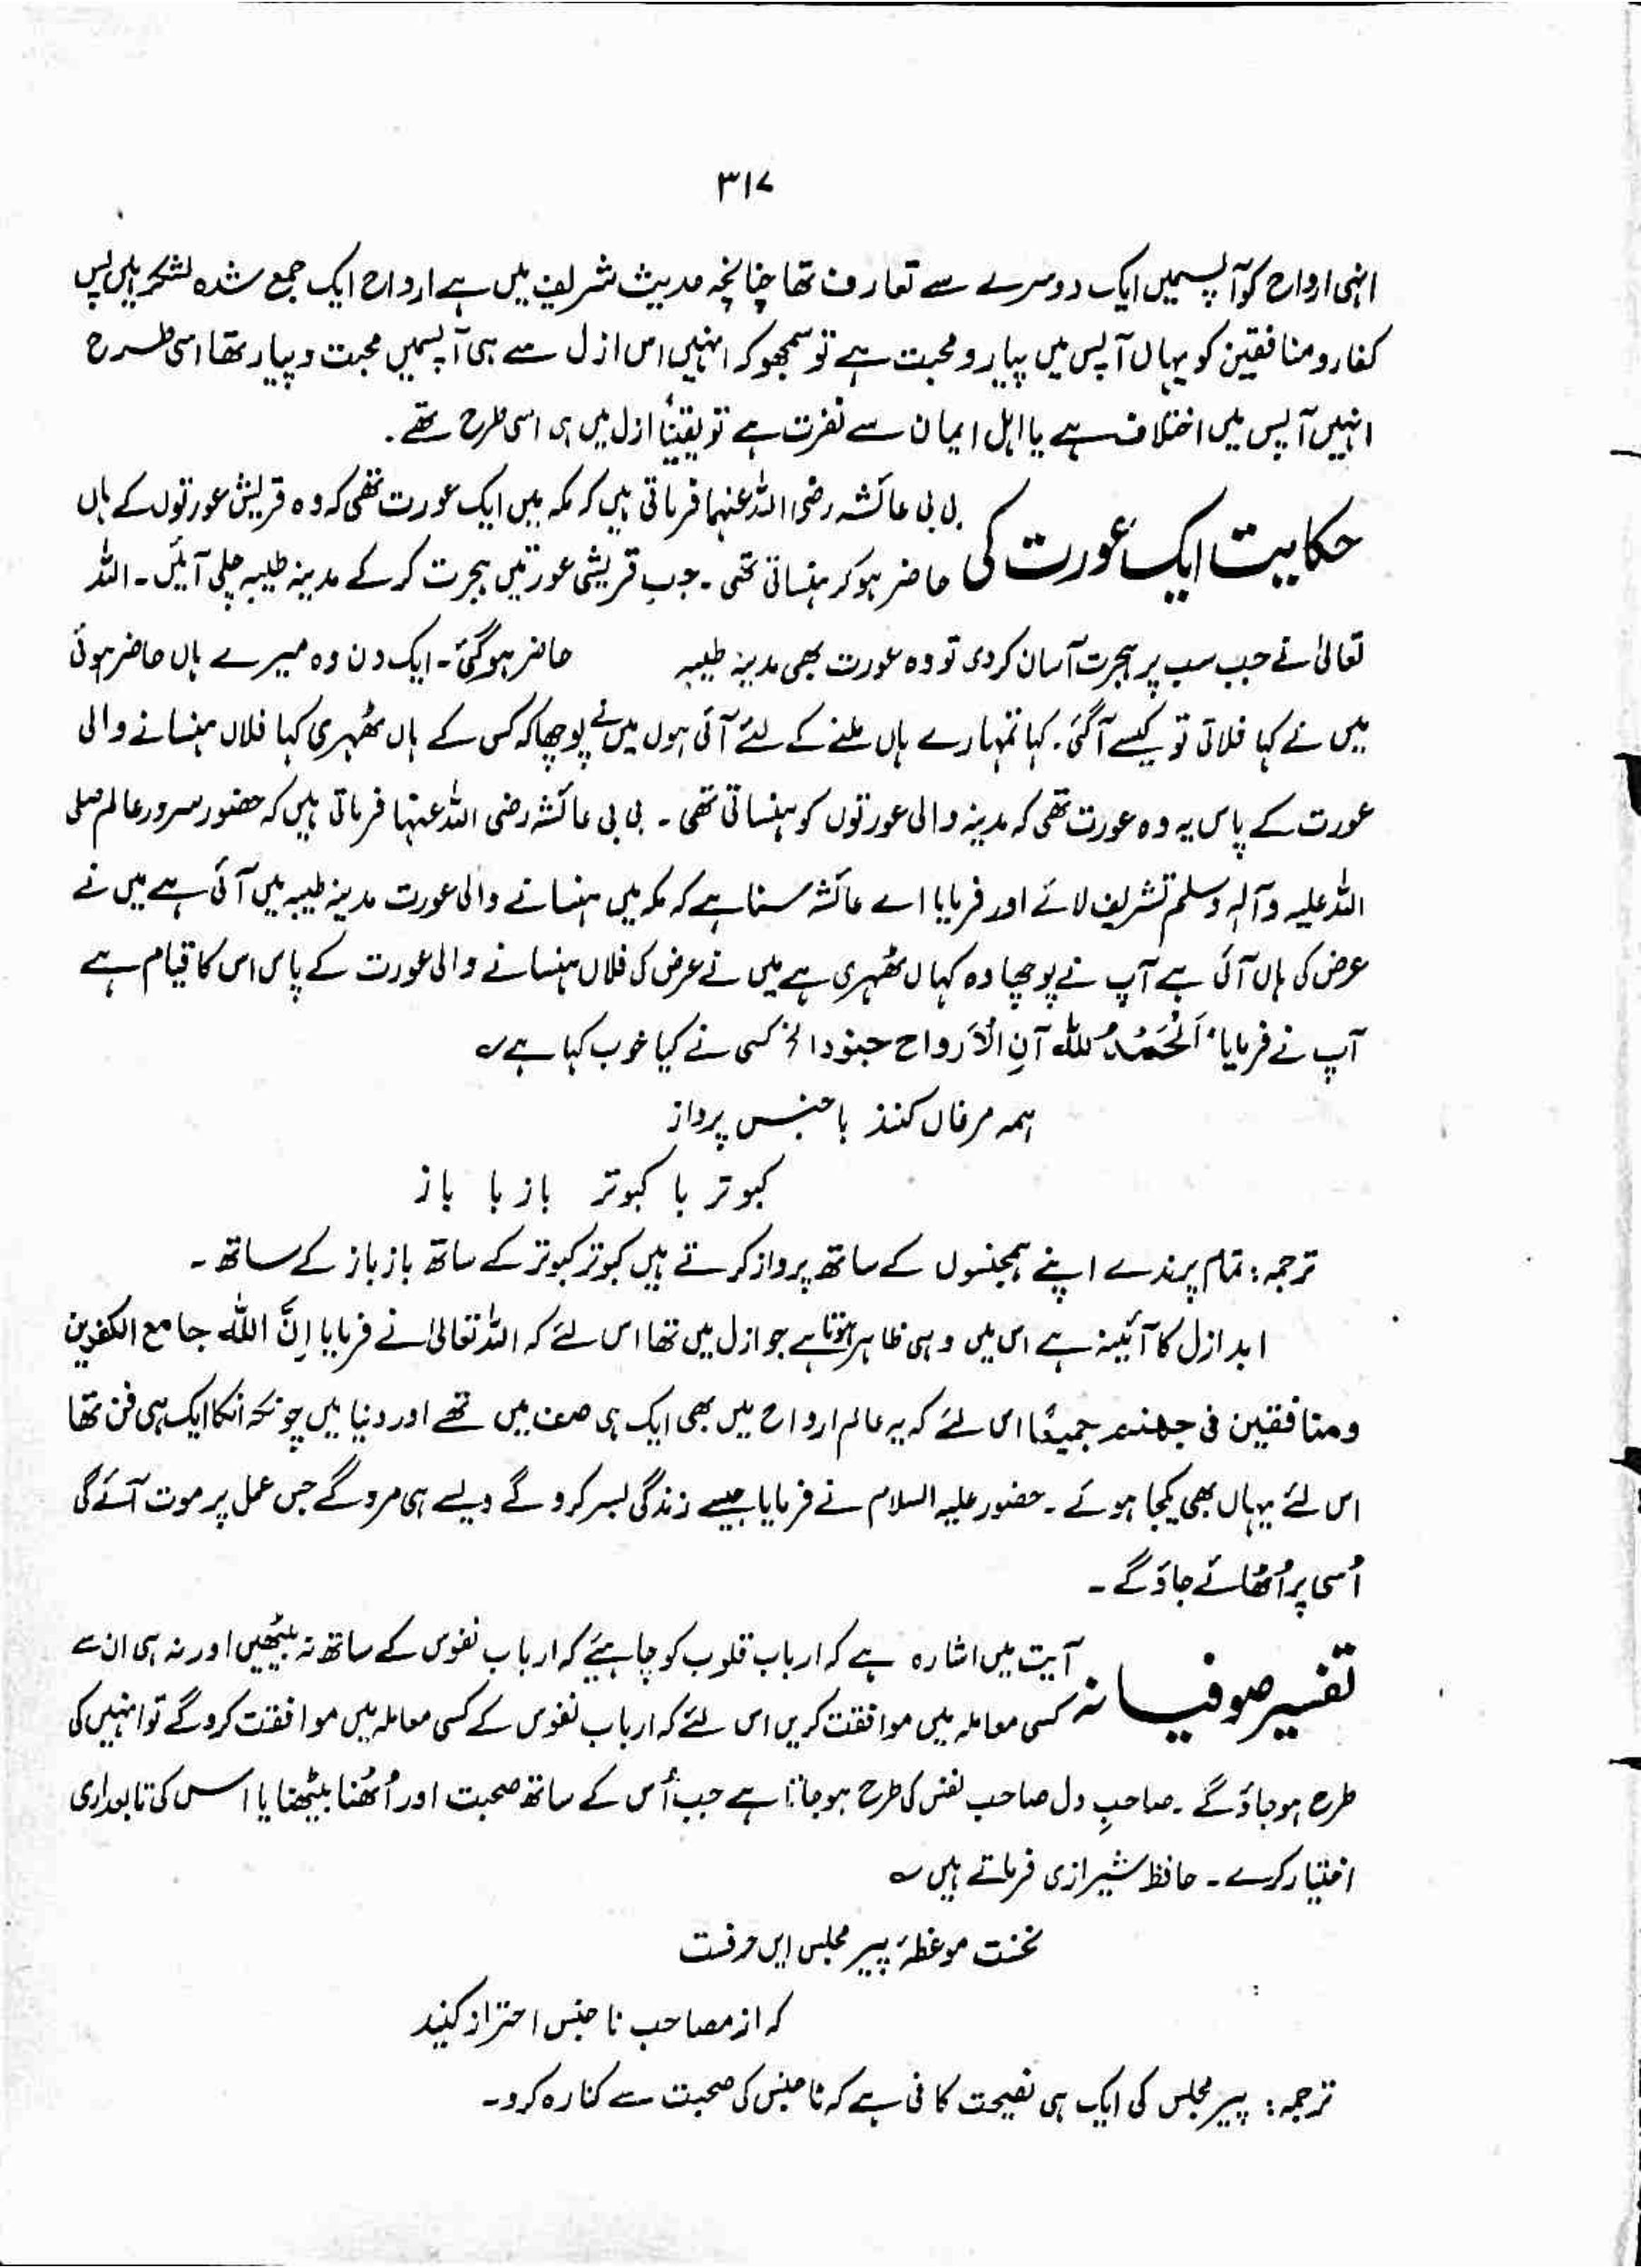 ۳۱۷
انہی ارواح کو آپسمیں ایک دوسرے سے تعارف تھا چنانچہ حدیث شریف میں ہے ارواح ایک جمع شدہ لشکر ہیں پس
کفار و منافقین کو یہاں آپس میں پیار و محبت ہے تو سمجھو کہ انہیں اس ازل سے ہی آپسمیں محبت و پیار تھا اسی طرح
انہیں آپس میں اختلاف ہے یا اہل ایمان سے نفرت ہے تو یقیناً ازل میں ہی اسی طرح تھے۔
حکایت ایک عورت کی
بی بی عائشہ رضی اللہ عنہما فرماتی ہیں کہ مکہ میں ایک عورت تھی کہ وہ قریش عورتوں کے ہاں
حاضر ہو کر ہنساتی تھی۔ جب قریشی عورتیں ہجرت کر کے مدینہ طیبہ چلی آئیں۔ اللہ
تعالیٰ نے جب سب پر ہجرت آسان کر دی تو وہ عورت بھی مدینہ طیبہ حاضر ہو گئی۔ ایک دن وہ میرے ہاں حاضر ہوئی
میں نے کہا فلاتی تو کیسے آ گئی۔ کہا تمہارے ہاں ملنے کے لئے آئی ہوں میں نے پوچھا کہ کس کے ہاں ٹھہری کہا فلاں ہنسانے والی
عورت کے پاس یہ وہ عورت تھی کہ مدینہ والی عورتوں کو ہنساتی تھی۔ بی بی عائشہ رضی اللہ عنہا فرماتی ہیں کہ حضور سرور عالم صلی
اللہ علیہ وآلہ وسلم تشریف لائے اور فرمایا اے عائشہ سنا ہے کہ مکہ میں ہنسانے والی عورت مدینہ طیبہ میں آئی ہے میں نے
عرض کی ہاں آئی ہے آپ نے پوچھا وہ کہاں ٹھہری ہے میں نے عرض کی فلاں ہنسانے والی عورت کے پاس اس کا قیام ہے
آپ نے فرمایا اَلْحَمْدُ لِلّٰہ آنِ الْاَرواح جنودا الخ کسی نے کیا خوب کہا ہے ؎
ہمہ مرغاں کنند با جنس پرواز
کبوتر با کبوتر باز با باز
ترجمہ: تمام پرندے اپنے ہمجنسوں کے ساتھ پرواز کرتے ہیں کبوتر کبوتر کے ساتھ باز باز کے ساتھ۔
ابد ازل کا آئینہ ہے اس میں وہی ظاہر ہوتا ہے جو ازل میں تھا اس لئے کہ اللہ تعالیٰ نے فرمایا اِنَّ اللّٰہ جامع الکٰفرین
ومنافقین فی جھنم جمیعًا اس لئے کہ یہ عالم ارواح میں بھی ایک ہی صف میں تھے اور دنیا میں چونکہ انکا ایک ہی فن تھا
اس لئے یہاں بھی یکجا ہوئے۔ حضور علیہ السلام نے فرمایا جیسے زندگی بسر کرو گے ویسے ہی مرو گے جس عمل پر موت آئے گی
اُسی پر اُٹھائے جاؤ گے۔
تفسیر صوفیانہ
آیت میں اشارہ ہے کہ ارباب قلوب کو چاہیئے کہ ارباب نفوس کے ساتھ نہ بیٹھیں اور نہ ہی ان سے
کسی معاملہ میں موافقت کریں اس لئے کہ ارباب نفوس کے کسی معاملہ میں موافقت کرو گے تو انہیں کی
طرح ہو جاؤ گے۔ صاحبِ دل صاحب نفس کی طرح ہو جاتا ہے جب اُس کے ساتھ صحبت اور اُٹھنا بیٹھنا یا اس کی تابعداری
اختیار کرے۔ حافظ شیرازی فرماتے ہیں ؎
نخست موعظۂ پیر مجلس ایں حرفست
کہ از مصاحب ناجنس احتراز کنید
ترجمہ: پیر مجلس کی ایک ہی نصیحت کافی ہے کہ ناجنس کی صحبت سے کنارہ کرو۔